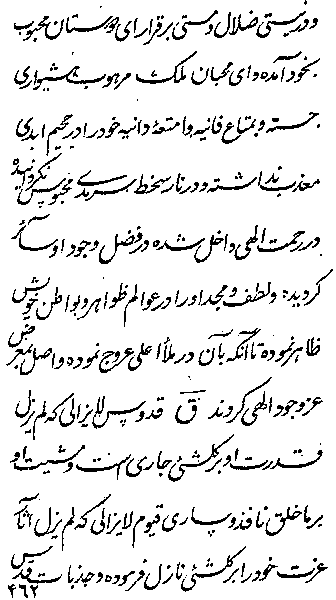 ودر نیستی ضلال و مستی برقرار ای دوستان محبوب
بخود آمده و ای محبان ملک مرهوب هشیواری
جسته و بمتاع فانیه و امتعهٔ دانیه خود را در جحیم ابدی
معذب نداشته و در نار سخط سرمدی محبوس نگردانیده
در رحمت الهی داخل شده در فضل وجود او سائر
گردیده و لطف و مجد او را در عوالم ظواهر و بواطن خویش
ظاهر نموده تا آنکه بآن در ملأ اعلی عروج نموده و اصل بمعرض
عز وجود الهی گروند ق قدوس لایزالی که لم یزل
قدرت او بر کلشئ جاری است و مشیت او
بر ما خلق نافذ و ساری قیوم لایزالی که لم یزل آثار
عزت خود را بر کلشئ نازل فرموده و جذبات قدس
۴۶۲